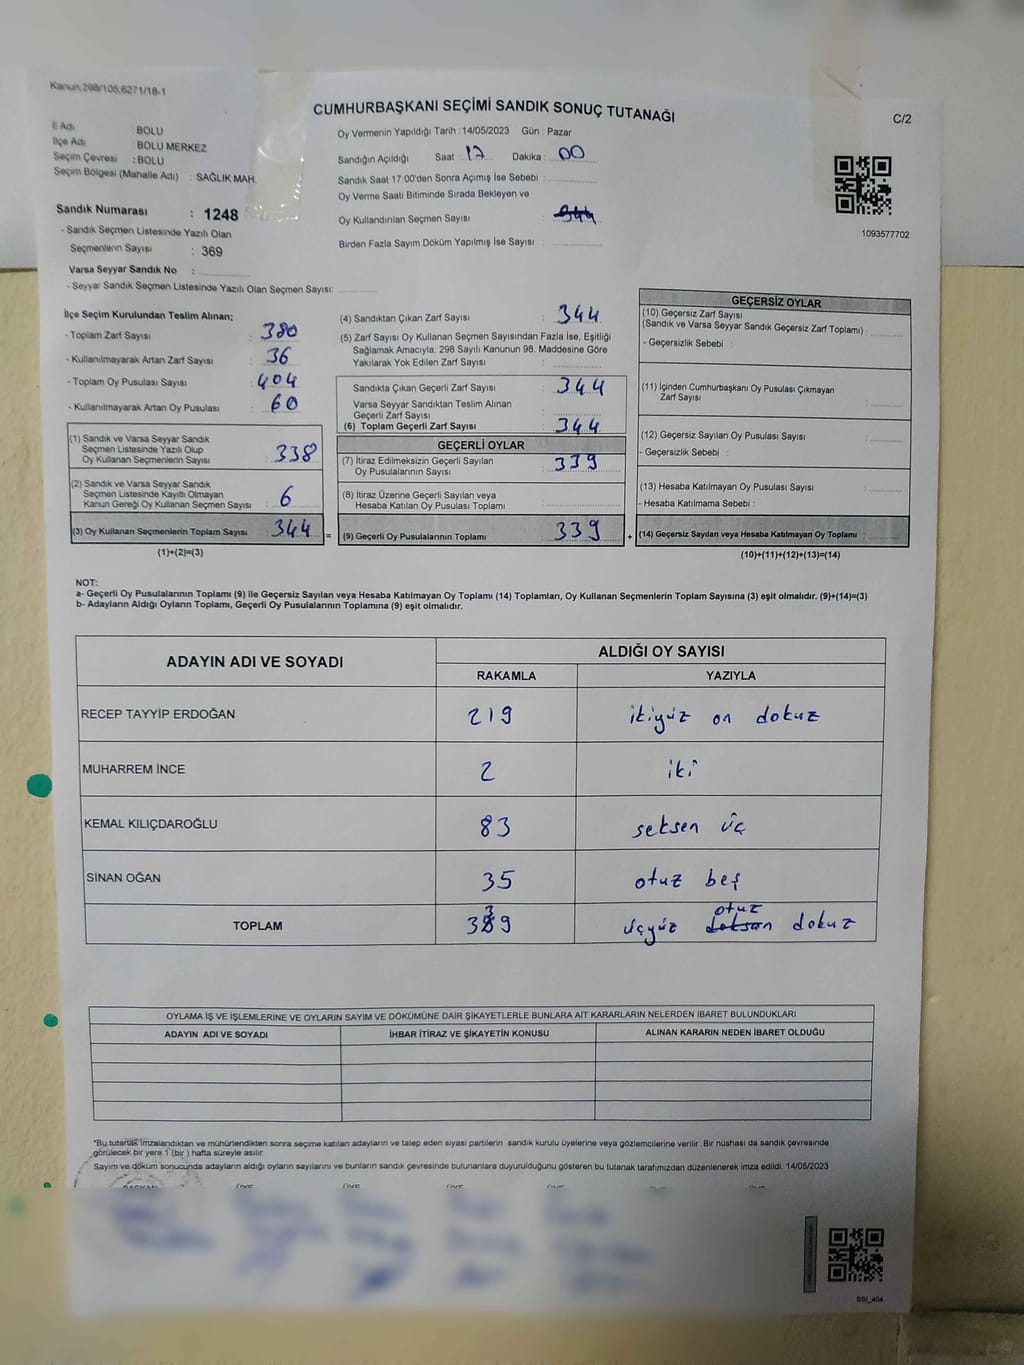 Kanun,298/105,6271/18-1
CUMHURBAŞKANI SEÇİMİ SANDIK SONUÇ TUTANAĞI
C/2
İl Adı : BOLU
İlçe Adı : BOLU MERKEZ
Seçim Çevresi : BOLU
Seçim Bölgesi (Mahalle Adı) : SAĞLIK MAH.
Sandık Numarası : 1248
- Sandık Seçmen Listesinde Yazılı Olan
Seçmenlerin Sayısı : 369
Varsa Seyyar Sandık No :
- Seyyar Sandık Seçmen Listesinde Yazılı Olan Seçmen Sayısı:
Oy Vermenin Yapıldığı Tarih : 14/05/2023 Gün : Pazar
Sandığın Açıldığı Saat : 17 Dakika : 00
Sandık Saat 17:00'den Sonra Açımış İse Sebebi :
Oy Verme Saati Bitiminde Sırada Bekleyen ve
Oy Kullandırılan Seçmen Sayısı : 344
Birden Fazla Sayım Döküm Yapılmış İse Sayısı :
1093577702
İlçe Seçim Kurulundan Teslim Alınan;
- Toplam Zarf Sayısı : 380
- Kullanılmayarak Artan Zarf Sayısı : 36
- Toplam Oy Pusulası Sayısı : 404
- Kullanılmayarak Artan Oy Pusulası : 60
(1) Sandık ve Varsa Seyyar Sandık
Seçmen Listesinde Yazılı Olup
Oy Kullanan Seçmenlerin Sayısı : 338
(2) Sandık ve Varsa Seyyar Sandık
Seçmen Listesinde Kayıtlı Olmayan
Kanun Gereği Oy Kullanan Seçmen Sayısı : 6
(3) Oy Kullanan Seçmenlerin Toplam Sayısı : 344 =
(1)+(2)=(3)
(4) Sandıktan Çıkan Zarf Sayısı : 344
(5) Zarf Sayısı Oy Kullanan Seçmen Sayısından Fazla İse, Eşitliği
Sağlamak Amacıyla, 298 Sayılı Kanunun 98. Maddesine Göre
Yakılarak Yok Edilen Zarf Sayısı :
Sandıkta Çıkan Geçerli Zarf Sayısı : 344
Varsa Seyyar Sandıktan Teslim Alınan
Geçerli Zarf Sayısı :
(6) Toplam Geçerli Zarf Sayısı : 344
GEÇERLİ OYLAR
(7) İtiraz Edilmeksizin Geçerli Sayılan
Oy Pusulalarının Sayısı : 339
(8) İtiraz Üzerine Geçerli Sayılan veya
Hesaba Katılan Oy Pusulası Toplamı :
(9) Geçerli Oy Pusulalarının Toplamı : 339 +
GEÇERSİZ OYLAR
(10) Geçersiz Zarf Sayısı
(Sandık ve Varsa Seyyar Sandık Geçersiz Zarf Toplamı) :
- Geçersizlik Sebebi :
(11) İçinden Cumhurbaşkanı Oy Pusulası Çıkmayan
Zarf Sayısı :
(12) Geçersiz Sayılan Oy Pusulası Sayısı :
- Geçersizlik Sebebi :
(13) Hesaba Katılmayan Oy Pusulası Sayısı :
- Hesaba Katılmama Sebebi :
(14) Geçersiz Sayılan veya Hesaba Katılmayan Oy Toplamı :
(10)+(11)+(12)+(13)=(14)
NOT:
a- Geçerli Oy Pusulalarının Toplamı (9) ile Geçersiz Sayılan veya Hesaba Katılmayan Oy Toplamı (14) Toplamları, Oy Kullanan Seçmenlerin Toplam Sayısına (3) eşit olmalıdır. (9)+(14)=(3)
b- Adayların Aldığı Oyların Toplamı, Geçerli Oy Pusulalarının Toplamına (9) eşit olmalıdır.
ADAYIN ADI VE SOYADI
ALDIĞI OY SAYISI
RAKAMLA YAZIYLA
RECEP TAYYİP ERDOĞAN 219 ikiyüz on dokuz
MUHARREM İNCE 2 iki
KEMAL KILIÇDAROĞLU 83 seksen üç
SİNAN OĞAN 35 otuz beş
TOPLAM 339 üçyüz doksan otuz dokuz
OYLAMA İŞ VE İŞLEMLERİNE VE OYLARIN SAYIM VE DÖKÜMÜNE DAİR ŞİKAYETLERLE BUNLARA AİT KARARLARIN NELERDEN İBARET BULUNDUKLARI
ADAYIN ADI VE SOYADI İHBAR İTİRAZ VE ŞİKAYETİN KONUSU ALINAN KARARIN NEDEN İBARET OLDUĞU
"Bu tutanak imzalandıktan ve mühürlendikten sonra seçime katılan adayların ve talep eden siyasi partilerin sandık kurulu üyelerine veya gözlemcilerine verilir .Bir nüshası da sandık çevresinde
görülecek bir yere 1 (bir ) hafta süreyle asılır.
Sayım ve döküm sonucunda adayların aldığı oyların sayılarını ve bunların sandık çevresinde bulunanlara duyurulduğunu gösteren bu tutanak tarafımızdan düzenlenerek imza edildi. 14/05/2023